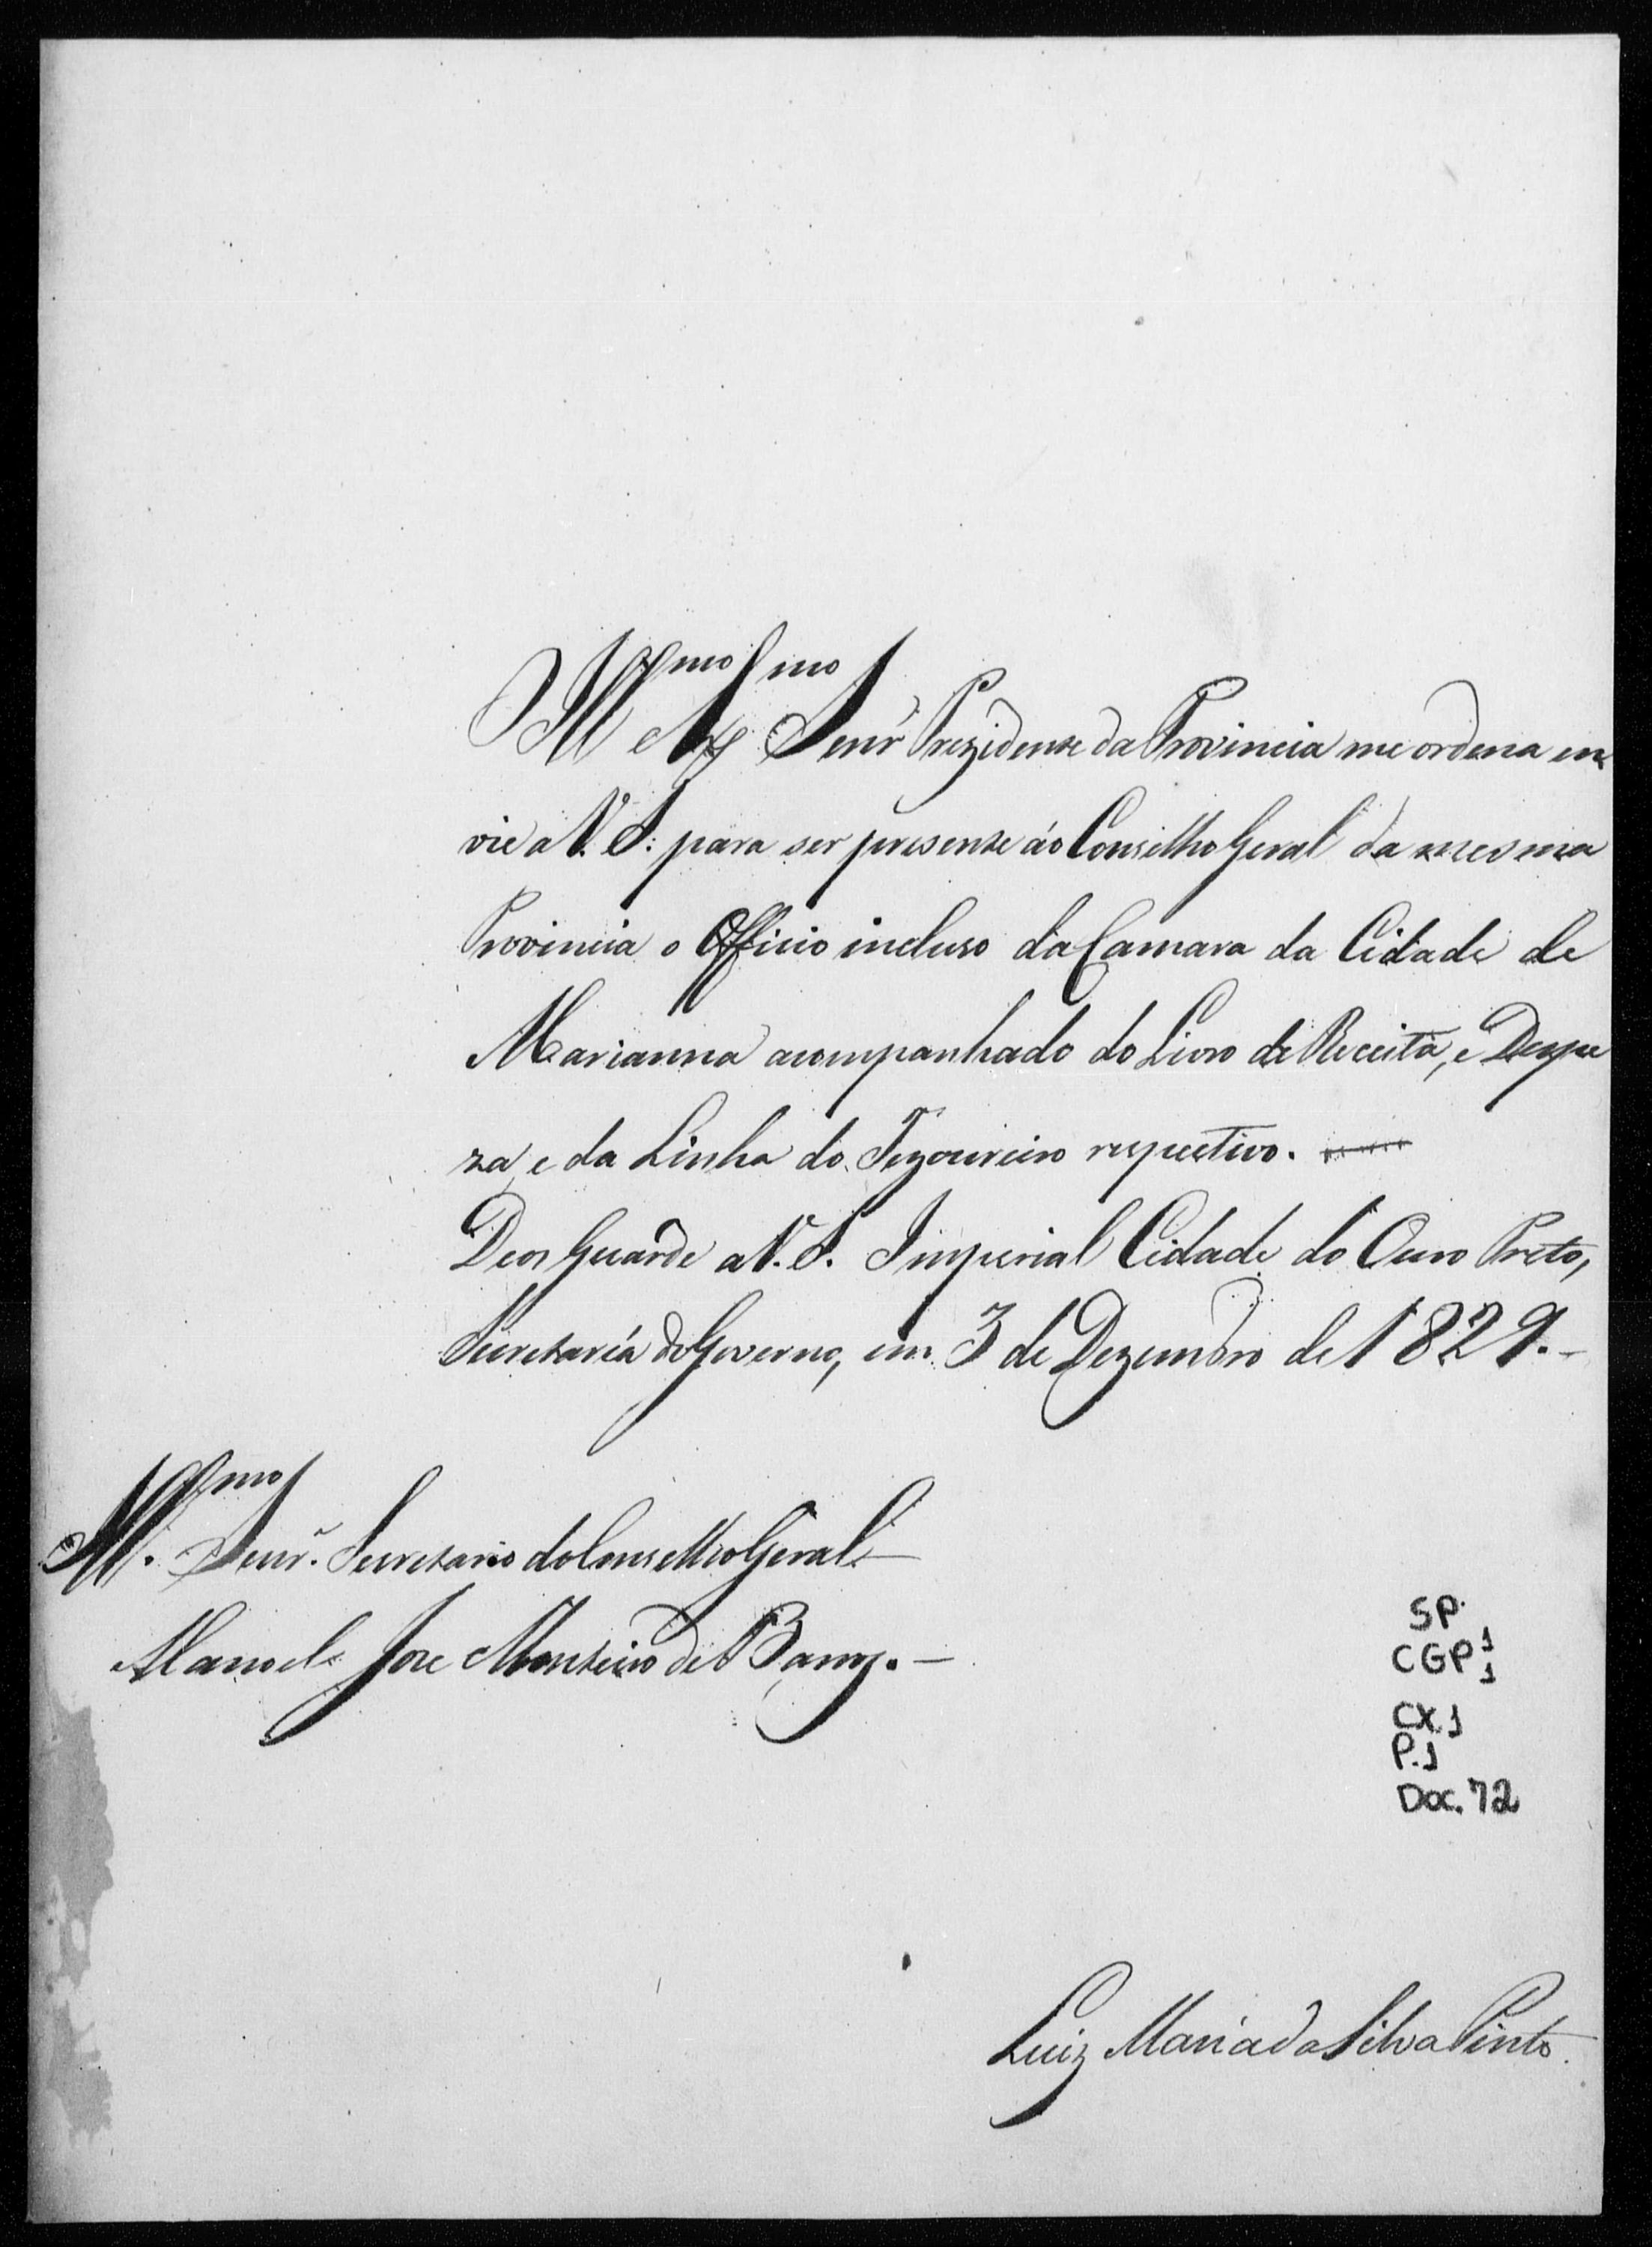 Illmo e Exmo Senr Prezidente da Provincia me ordena en
vie a V. S. para ser presente áo Conselho Geral da mesma
Provincia o Officio incluso da Camara da Cidade de
Marianna acompanhado do Livro de Receita, e Despe
za, e da Linha do Tezoureiro respectivo.
Deos Guarde a V. S. Imperial Cidade do Ouro Preto,
Secretaría do Governo, em 3 de Dezembro de 1829.
Illmo. Senr. Secretario do Conselho Geral
Manoel Jose Monteiro de Barros.
SP.
CGP 1
1
CX.1
P.1
Doc. 72
Luiz Maria da Silva Pinto.